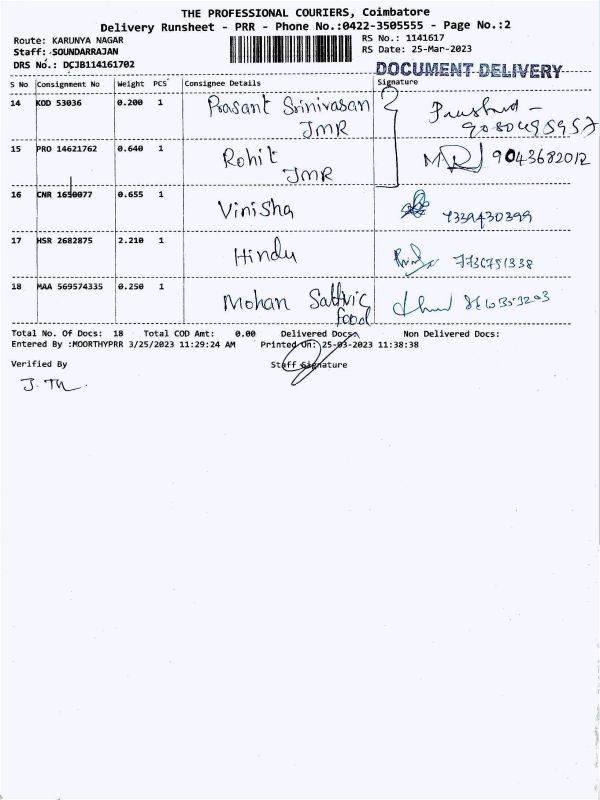 THE PROFESSIONAL COURIERS, Coimbatore
Delivery Runsheet - PRR - Phone No.:0422-3505555 - Page No.:2
Route: KARUNYA NAGAR RS No.: 1141617
Staff: SOUNDARRAJAN RS Date: 25-Mar-2023
DRS No.: DCJB114161702 DOCUMENT DELIVERY
S No Consignment No Weight PCS Consignee Details Signature
14 KOD 53036 0.200 1 Prasant Srinivasan
JMR
15 PRO 14621762 0.640 1 Rohit 9043682012
JMR
16 CNR 1650077 0.655 1 Vinisha 7339430399
17 HSR 2682875 2.210 1 Hindu
18 MAA 569574335 0.250 1 Mohan Sattvic
food
Total No. Of Docs: 18 Total COD Amt: 0.00 Delivered Docs: Non Delivered Docs:
Entered By :MOORTHYPRR 3/25/2023 11:29:24 AM Printed On: 25-03-2023 11:38:38
Verified By Staff Signature